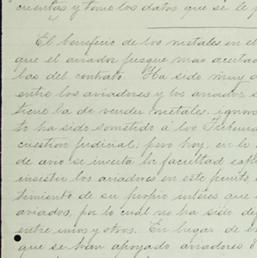 cuentas y tome los datos que se le p
El beneficio de los metales en el
que el aviador presque mas acerta
las del contrato. Ha sido muy d
entre los aviadores y los aviados s
tiene la de vender metales, ignoro
to ha sido sometido á los Tribuna
cuestion judicial; pero hoy, en lo
de avio se inserta la facultad
insistir los aviadores en este punto,
timiento de su propio interes que
aviados, por lo cual no ha sido de
entre unos y otros. En lugar de
que se han apoyado aviadores